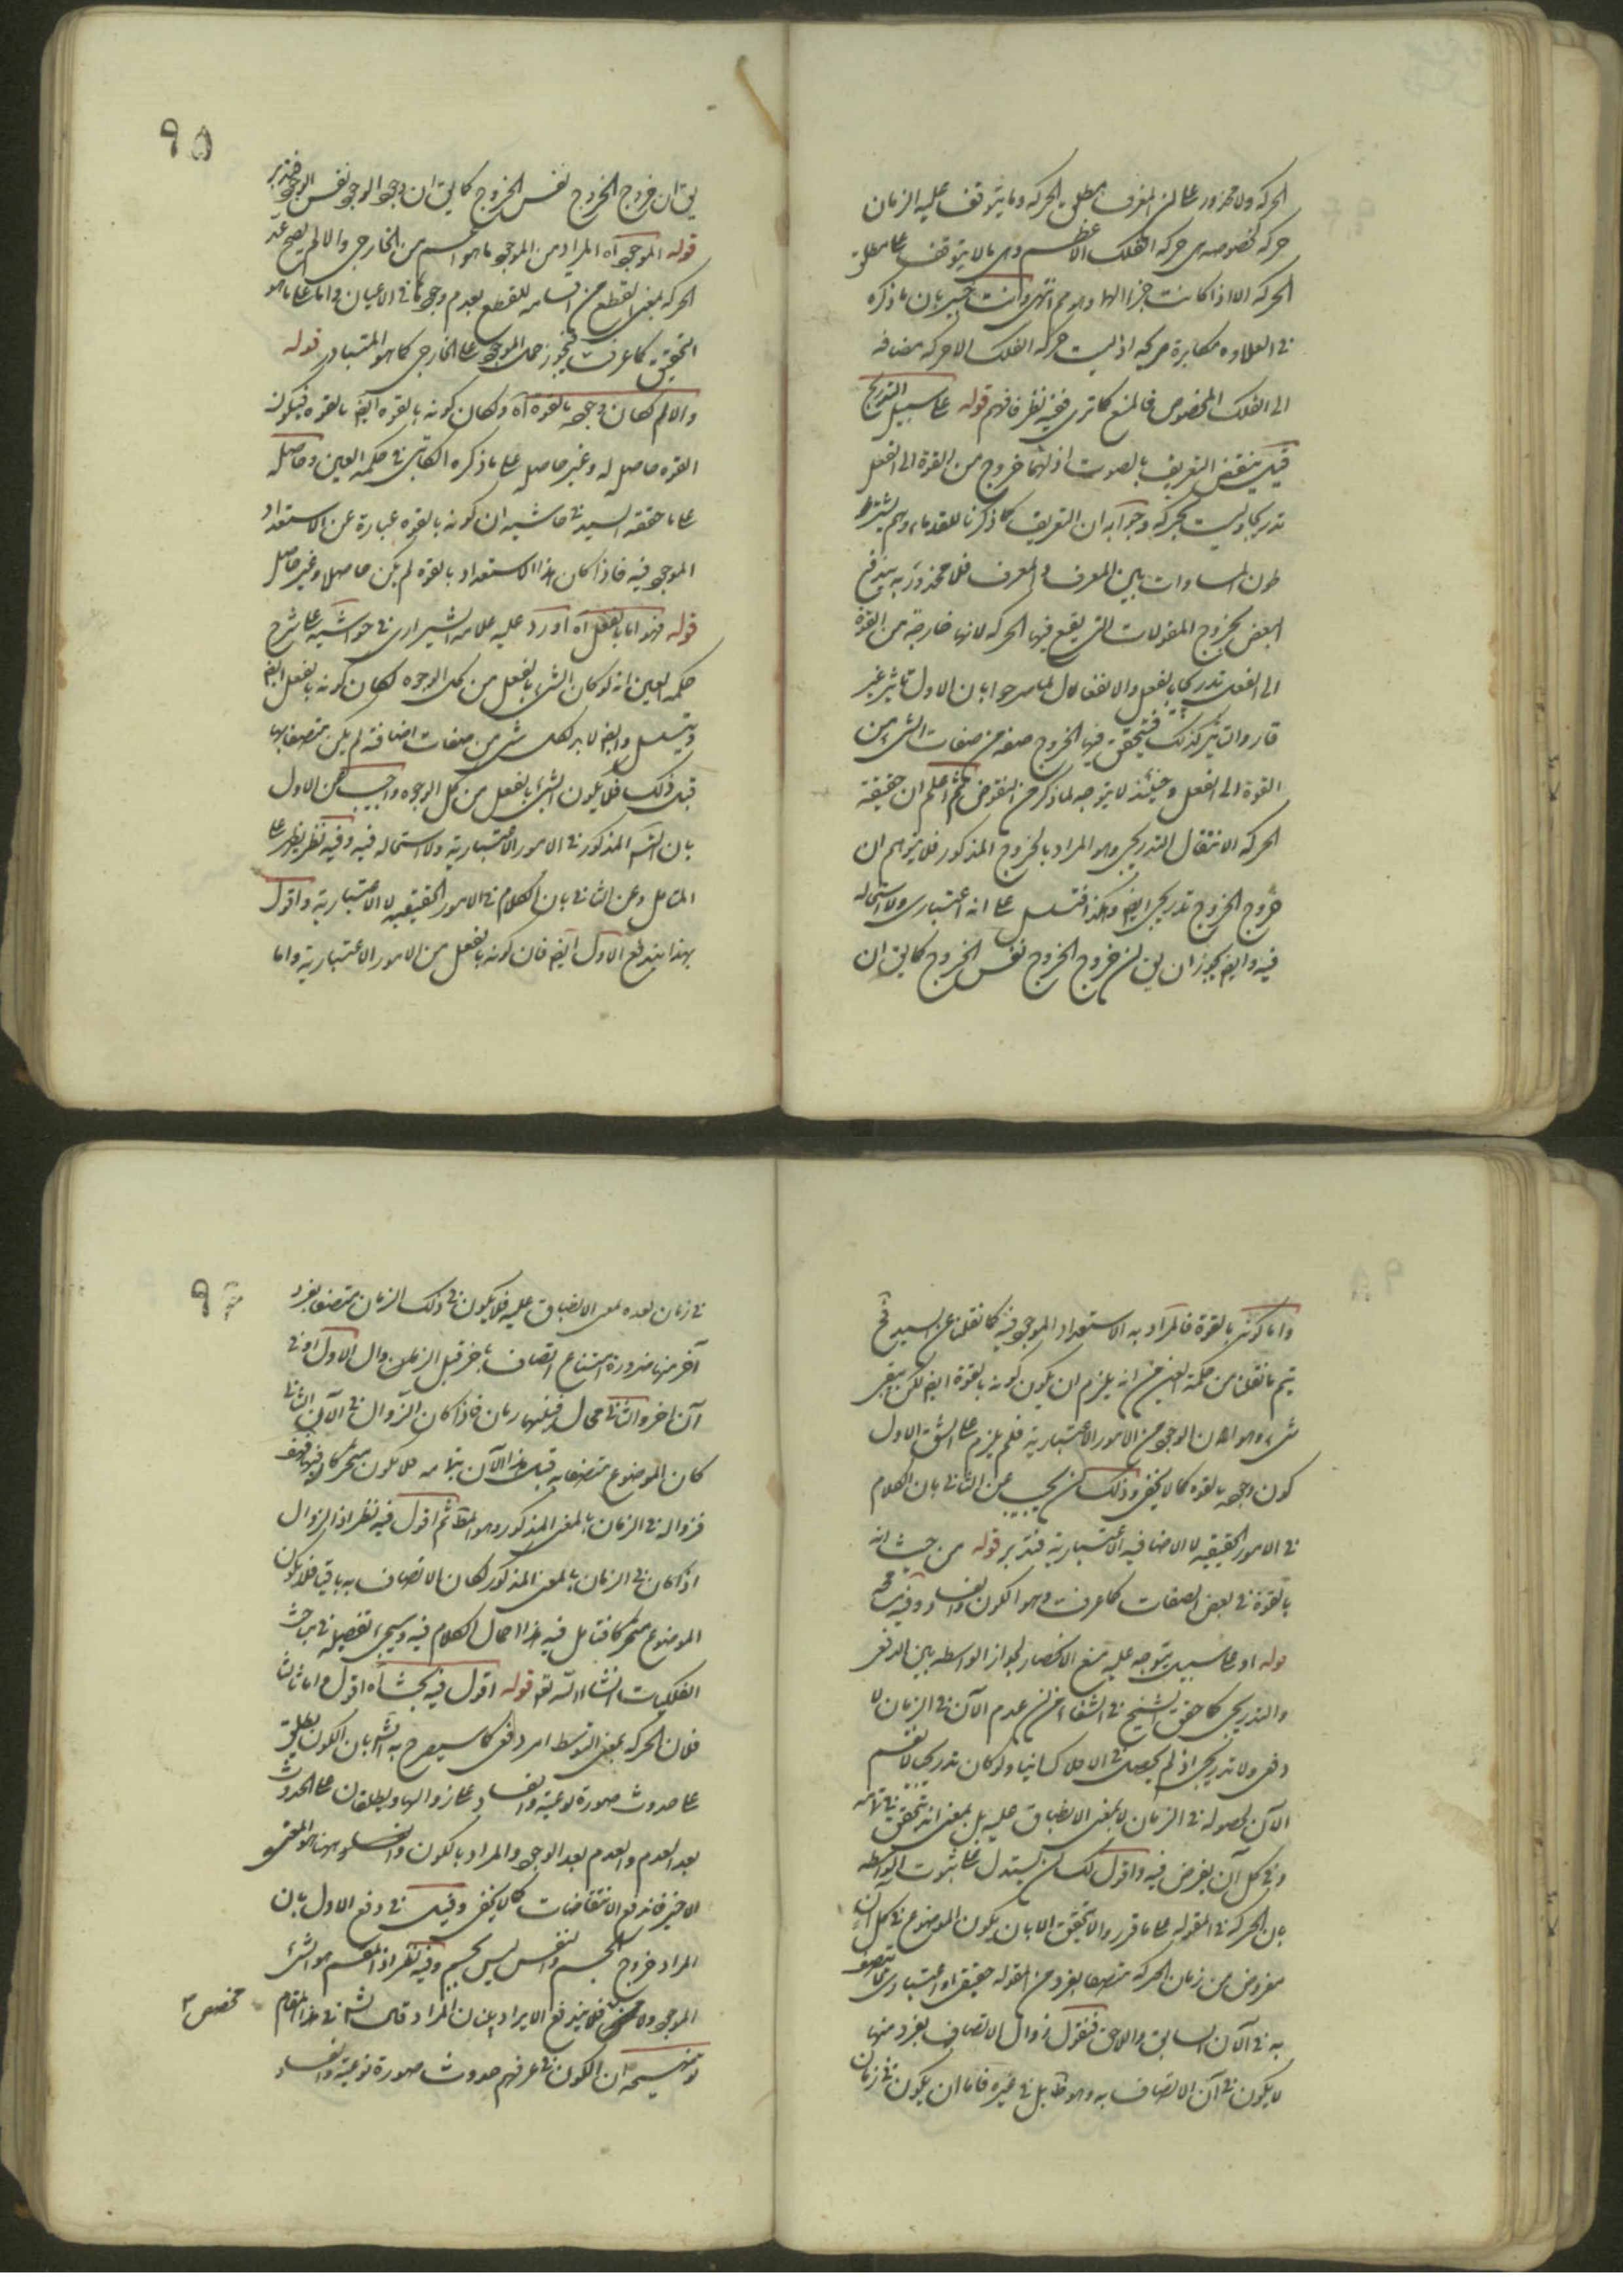 الحركه ولا محذور على ان المعرف مطلق الحركه وما يتوقف عليه الزمان
حركه مخصوصه هى حركه الفلك الاعظم وهى مما لا يتوقف على مطلق
الحركه الا اذا كانت جزءا لها وهو مم انتهى وانت خبير بان ما ذكره
فى العلاوه مكابرة صريحه اذ ليست حركه الفلك الا حركه مضافه
الى الفلك المخصوص فالمنع كما ترى ففيه نظر فافهم قوله على سبيل التدريج
قيل ينتقض التعريف بالصوت اذ لهما خروج من القوة الى الفعل
تدريجا وليست بحركه وجوابه ان التعريف كما ذكرنا للقدماء وهم لا يشترطون
المساوات بين المعرف والمعرف فلا محذور به يندفع
النقض بخروج المقولات التى يقع فيها الحركه لانها خارجه من القوة
الى الفعل تدريجا بالفعل والانفعال لما صرحوا بان الاول تاثير غير
قار والتاثر كذلك فيتحقق فيها الخروج صفه من صفات الشىء من
القوة الى الفعل وحينئذ لا يتوجه لما ذكر من النقوض ثم اعلم ان حقيقة
الحركه الانتقال التدريجى وهو المراد بالخروج المذكور فلا يتوهم ان
خروج الخروج تدريجى ايضا وهكذا فتسلسل على انه اعتبارى ولا استحاله
فيه وايضا يجوز ان يق ان خروج الخروج نفس الخروج كما يق ان
٩٥
يق ان خروج الخروج نفس الخروج كما يق ان وجود الوجود نفس الوجود فتدبر
قوله الموجود اه المراد من الموجود ما هو اعم من الخارجى والا لم يصح عد
الحركه بمعنى القطع من اقسامه للقطع بعدم وجودها فى الاعيان واما على ما هو
التحقيق كما عرفت فيجوز حمل الموجود على الخارجى كما هو المتبادر قوله
والا لكان وجوده بالقوه اه ولكان كونه بالقوه ايضا بالقوه فيكون
القوه حاصل له وغير حاصل على ما ذكره الكاتبى فى حكمه العين وحاصله
على ما حققه السيد فى حاشيه ان كونه بالقوه عبارة عن الاستعداد
الموجود فيه فاذا كان هذا الاستعداد بالقوه لم يكن حاصلا وغير حاصل
قوله فهو اما بالفعل اه اورد عليه علامه الشيرازى فى حواشيه على شرح
حكمه العين انه لو كان الشىء بالفعل من كل الوجوه لكان كونه بالفعل ايضا
وتسلسل وايضا لابد لكل شىء من صفات اضافته لم يكن متصفا بها
قبل ذلك فلا يكون الشىء بالفعل من كل الوجوه واجيب عن الاول
بان التس المذكور فى الامور الاعتباريه ولا استحاله فيه وفيه نظر يظهر على
المتامل وعن الثانى بان الكلام فى الامور الحقيقيه لا الاعتباريه واقول
بهذا يندفع الاول ايضا فان كونه بالفعل من الامور الاعتباريه واما
واما كونه بالقوة فالمراد به الاستعداد الموجود فيه كما نقلنا عن السيد فح
يتم ما نقلنا من حكمة العين من انه يلزم ان يكون كونه بالقوة ايضا لكن يبقى
شىء وهو ان الوجود من الامور الاعتباريه فلم يلزم على الشق الاول
كون وجوده بالقوه كما لا يخفى وذلك ان يجيب عن الثانى بان الكلام
فى الامور الحقيقيه لا الاضافيه الاعتباريه فتدبر قوله من حيث انه
بالقوة فى بعض الصفات كما عرفت وهو الكون والفساد وفيه بحث
قوله او على سبيل يتوجه عليه منع الانحصار لجواز الواسطه بين الدفعى
والتدريجى كما حقق الشيخ فى الشفاء من ان عدم الآن فى الزمان لا
دفعى ولا تدريجى اذ لم يحصل فى الا ولو كان تدريجا لا نقسم
الآن بحصوله فى الزمان لا بمعنى الانطباق عليه بل بمعنى انه يتحقق فى تمامه
وفى كل آن يفرض فيه واقول لك ان يستدل على ثبوت الواسطه
بان الحركه فى المقوله على ما قرر والا تحقيق الا بان يكون الموضوع فى كل آن
مفروض من زمان الحركه متصفا بفرد من المقوله حقيقى او اعتبارى لا يتصف
به فى الآن السابق واللاحق فنقول زوال الاتصاف بفرد منها
لا يكون فى آن الاتصاف به وهو ظ بل فى غيره فاما ان يكون فى زمان
٩٦
فى زمان بعده بمعنى الانطباق عليه فلا يكون فى ذلك الزمان متصفا بفرد
آخر منها ضرورة امتناع اتصاف باخر قبل الزوال الاول او فى
آن اخر والثانى محال فبينهما زمان فاذا كان الزوال فى الآن الثانى
كان الموضوع متصفا به قبل هذا الآن بتمامه فلا يكون متحركا فيه هف
فزواله فى الزمان بالمعنى المذكور وهو المط ثم اقول فيه نظر اذ الزوال
اذا كان فى الزمان بالمعنى المذكور لكان الاتصاف به باقيا فلا يكون
الموضوع متحركا فتامل فيه هذا اجمال الكلام فيه وسيجىء تفصيله فى مباحث
الفلكيات انشاء الله تعا قوله اقول فيه بحث اه اقول واما ثالثا
فلان الحركه بمعنى التوسط امر دفعى كما سيصرح به الش بان الكون يطلق
على حدوث صورة نوعيه والفساد على زوالها ويطلقان على الحدوث
بعد العدم والعدم بعد الوجود والمراد بالكون والفساد ههنا هو المعنى
الاخير فاندفع الانتقاضات كما لا يخفى وقيل فى دفع الاول بان
المراد خروج الجسم والنفس ليس بجسم وفيه نظر اذ المقسم هو الشىء
الموجود ولا مخصص فلا يندفع الايراد بان المراد قال الش فى هذا المقام
ان الكون فى عرفهم حدوث صورة نوعيه والفساد
مخصص